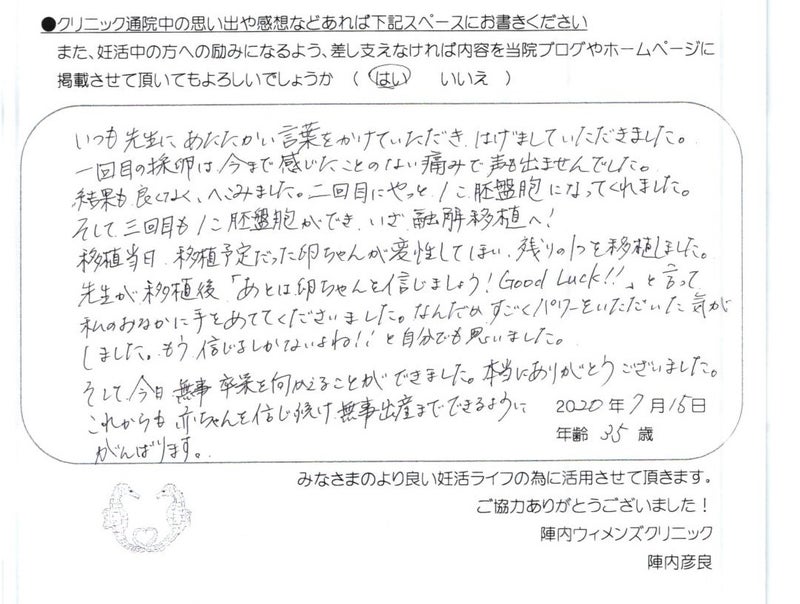 ●クリニック通院中の思い出や感想などあれば下記スペースにお書きください
また、妊活中の方への励みになるよう、差し支えなければ内容を当院ブログやホームページに
掲載させて頂いてもよろしいでしょうか （ はい いいえ ）
いつも先生に あたたかい言葉をかけていただき、はげましていただきました。
一回目の採卵は、今まで感じたことのない痛みで声も出ませんでした。
結果も良くなく、へこみました。二回目にやっと1コ胚盤胞になってくれました。
そして三回目も1コ胚盤胞ができ、いざ融解移植へ！
移植当日、移植予定だった卵ちゃんが変性してしまい、残りの1つを移植しました。
先生が、移植後「あとは卵ちゃんを信じましょう！Good Luck!!」と言って
私のおなかに手をあててくださいました。なんだかすごくパワーをいただいた気が
しました。もう信じるしかないよね！！と自分でも思いました。
そして、今日無事卒業を向かえることができました。本当にありがとうございました。
これからも赤ちゃんを信じ続け無事出産までできるように
がんばります。
2020年7月15日
年齢 35 歳
みなさまのより良い妊活ライフの為に活用させて頂きます。
ご協力ありがとうございました！
陣内ウィメンズクリニック
陣内彦良